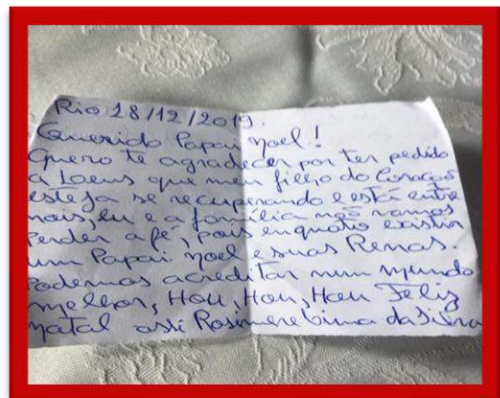 Rio 18/12/2019.
Querido Papai Noel!
Quero te agradecer por ter pedido
a Deus que meu filho do Coração
esteja se recuperando e está entre
nois, eu e a família não vamos
Perder a fé, pois enquato existir
um Papai Noel e suas Renas.
Podemos acreditar num mundo
melhor, Hou, Hou, Hou Feliz
Natal ass: Rosimere Lima da Silva